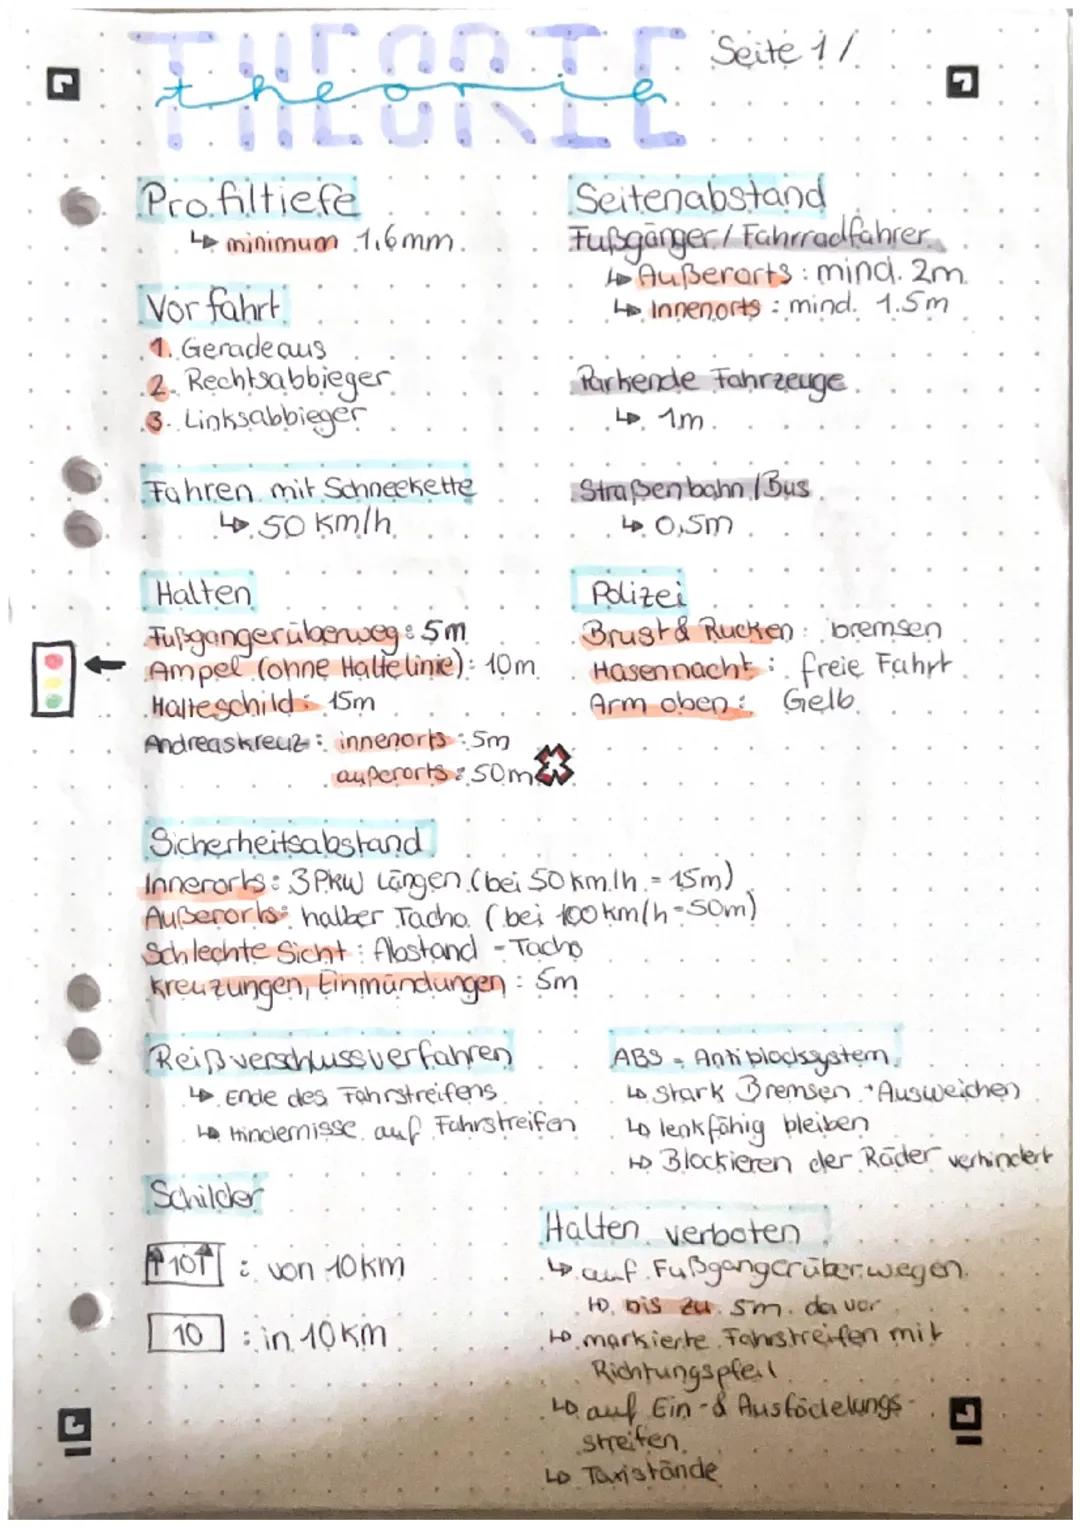 THEORIE
theorie
Seite 1/
Profiltiefe
↳ minimum 1,6mm.
Vorfahrt
1. Geradeaus
2. Rechtsabbieger
3. Linksabbieger
Fahren mit Schneekette
↳ 50 km/h
Halten
Fußgangerüberweg: 5m
Ampel (ohne Haltelinie): 10m
Halteschild: 15m
Andreaskreuz: innerorts: 5m
außerorts: 50m
Seitenabstand
Fußgänger / Fahrradfahrer
↳ Außerorts: mind. 2m
↳ Innenorts: mind. 1.5m
Parkende Fahrzeuge
↳ 1m
Straßenbahn / Bus
↳ 0,5m
Polizei
Brust & Rucken: bremsen
Hasennacht: freie Fahrt
Arm oben: Gelb
Sicherheitsabstand
Innerorts: 3 PKW Längen (bei 50 km/h = 15m)
Außerorts: halber Tacho (bei 100 km/h - 50m)
Schlechte Sicht: Abstand - Tacho
Kreuzungen, Einmündungen: 5m
Reißverschlussverfahren
↳ Ende des Fahrstreifens
↳ Hindernisse auf Fahrstreifen
ABS - Antiblocksystem
↳ Stark Bremsen + Ausweichen
↳ lenkfähig bleiben
↳ Blockieren der Räder verhindert
Schilder
↑10↑ : von 10km
10 : in 10km
Halten verboten
↳ auf Fußgangerüberwegen
↳ bis zu 5m davor
↳ markierte Fahrstreifen mit
Richtungspfeil
↳ auf Ein- & Ausfädelungs-
streifen
↳ Taxistände